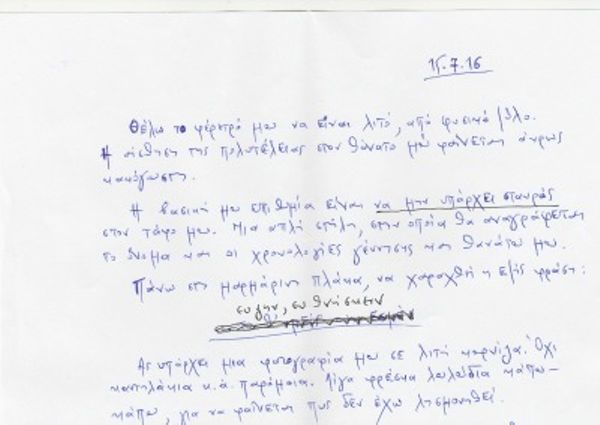 15.7.16
Θέλω το φέρετρό μου να είναι λιτό, από φυσικό ξύλο.
Η αίσθηση της πολυτέλειας στον θάνατο μού φαίνεται άκρως
κακόγουστη.
Η βασική μου επιθυμία είναι να μην υπάρχει σταυρός
στον τάφο μου. Μια απλή στήλη, στην οποία θα αναγράφεται
το όνομα και οι χρονολογίες γέννησης και θανάτου μου.
Πάνω στη μαρμάρινη πλάκα, να χαραχθή η εξής φράση:
ευ ζην, ευ θνήσκειν
Ας υπάρχει μια φωτογραφία μου σε λιτή κορνίζα. Όχι
καντηλάκια κ.ά. παρόμοια. Λίγα φρέσκα λουλούδια κάπου-
κάπου, για να φαίνεται πως δεν έχω λησμονηθεί.